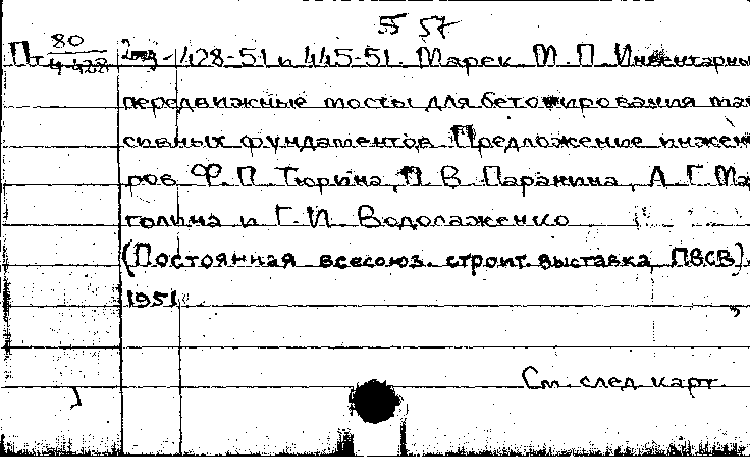 55 57
Пт 80 428-51 и 445-51. Марек М. П. Инвентарны
4-428
передвижные мосты для бетонирования мас
сивных фундаментов. Предложение инжен
ров Ф. П. Тюрина, П. В. Паранина, А. Г. Ма
голина и Г. И. Водолаженко
(Постоянная всесоюз. строит. выставка ПВСВ).
1951
См. след. карт.